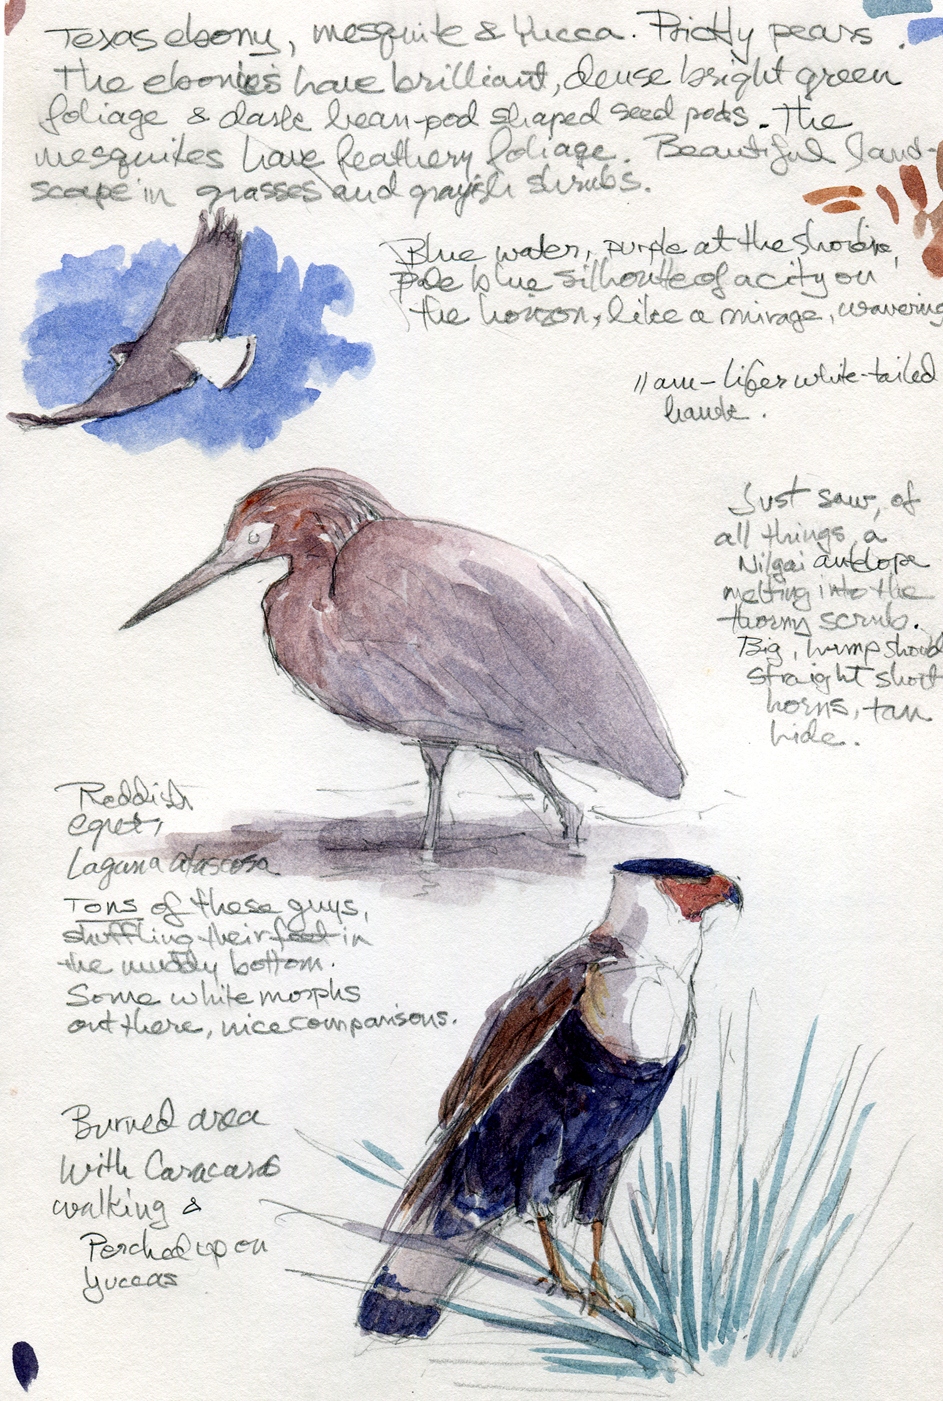 Texas ebony, mesquite & Yucca. Prickly pears.
The ebonies have brilliant, dense bright green
foliage & dark bean-pod shaped seed pods. The
mesquites have feathery foliage. Beautiful land-
scape in grasses and grayish shrubs.
Blue water, purple at the shoreline,
Pale blue silhoutte of a city on
the horizon, like a mirage, wavering
11 am - lifer white-tailed
hawk.
Just saw, of
all things, a
Nilgai antelope
melting into the
thorny scrub.
Big, hump should
straight short
horns, tan
hide.
Reddish
egret,
Laguna Atascosa
TONS of these guys,
shuffling their feet in
the muddy bottom.
Some white morphs
out there, nice comparisons.
Burned area
with Caracaras
walking &
Perched up on
Yuccas